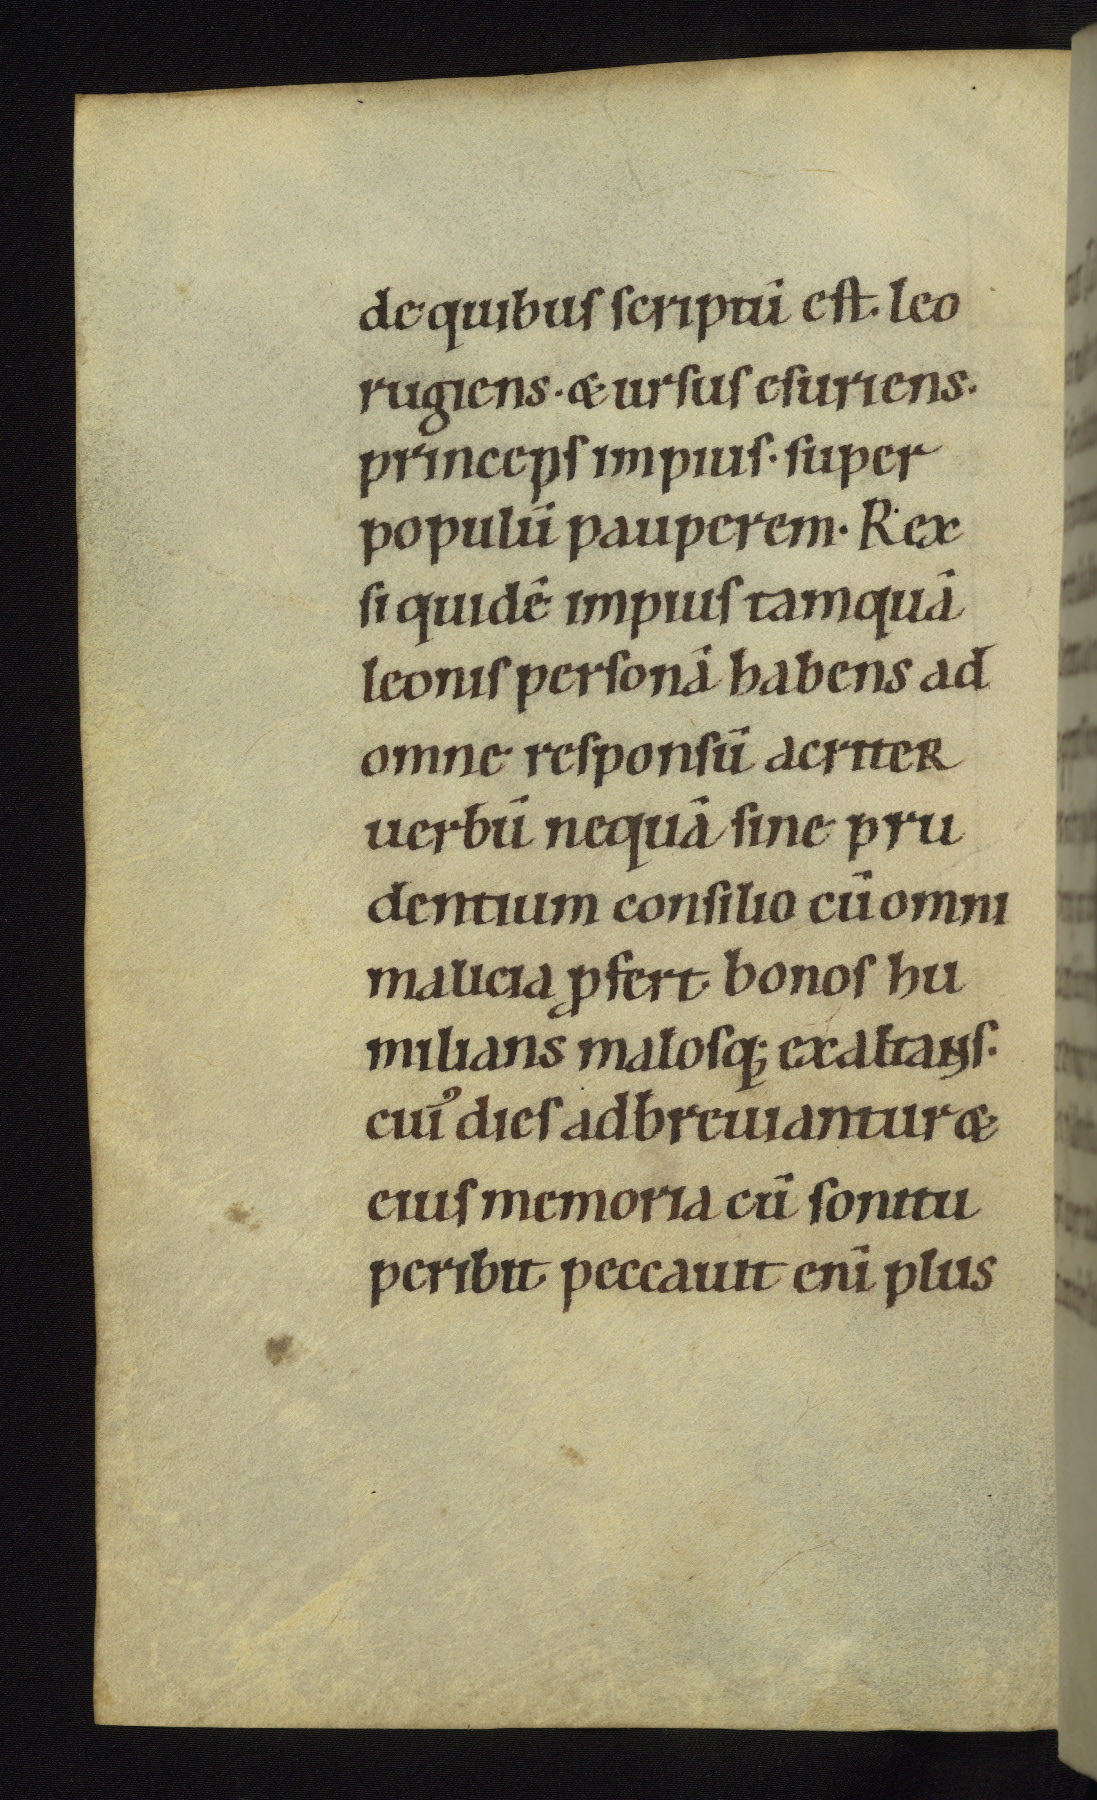 de quibus scriptū est. leo
rugiens. & ursus esuriens.
princeps impius. super
populū pauperem. Rex
si quidē impius tamquā
leonis personā habens ad
omne responsū acriter
uerbū nequā sine pru
dentium consilio cū omni
malicia ꝓfert bonos hu
milians malosq; exaltans.
cuiꝰ dies adbreuiantur &
eius memoria cū sonitu
peribit peccauit enī plus